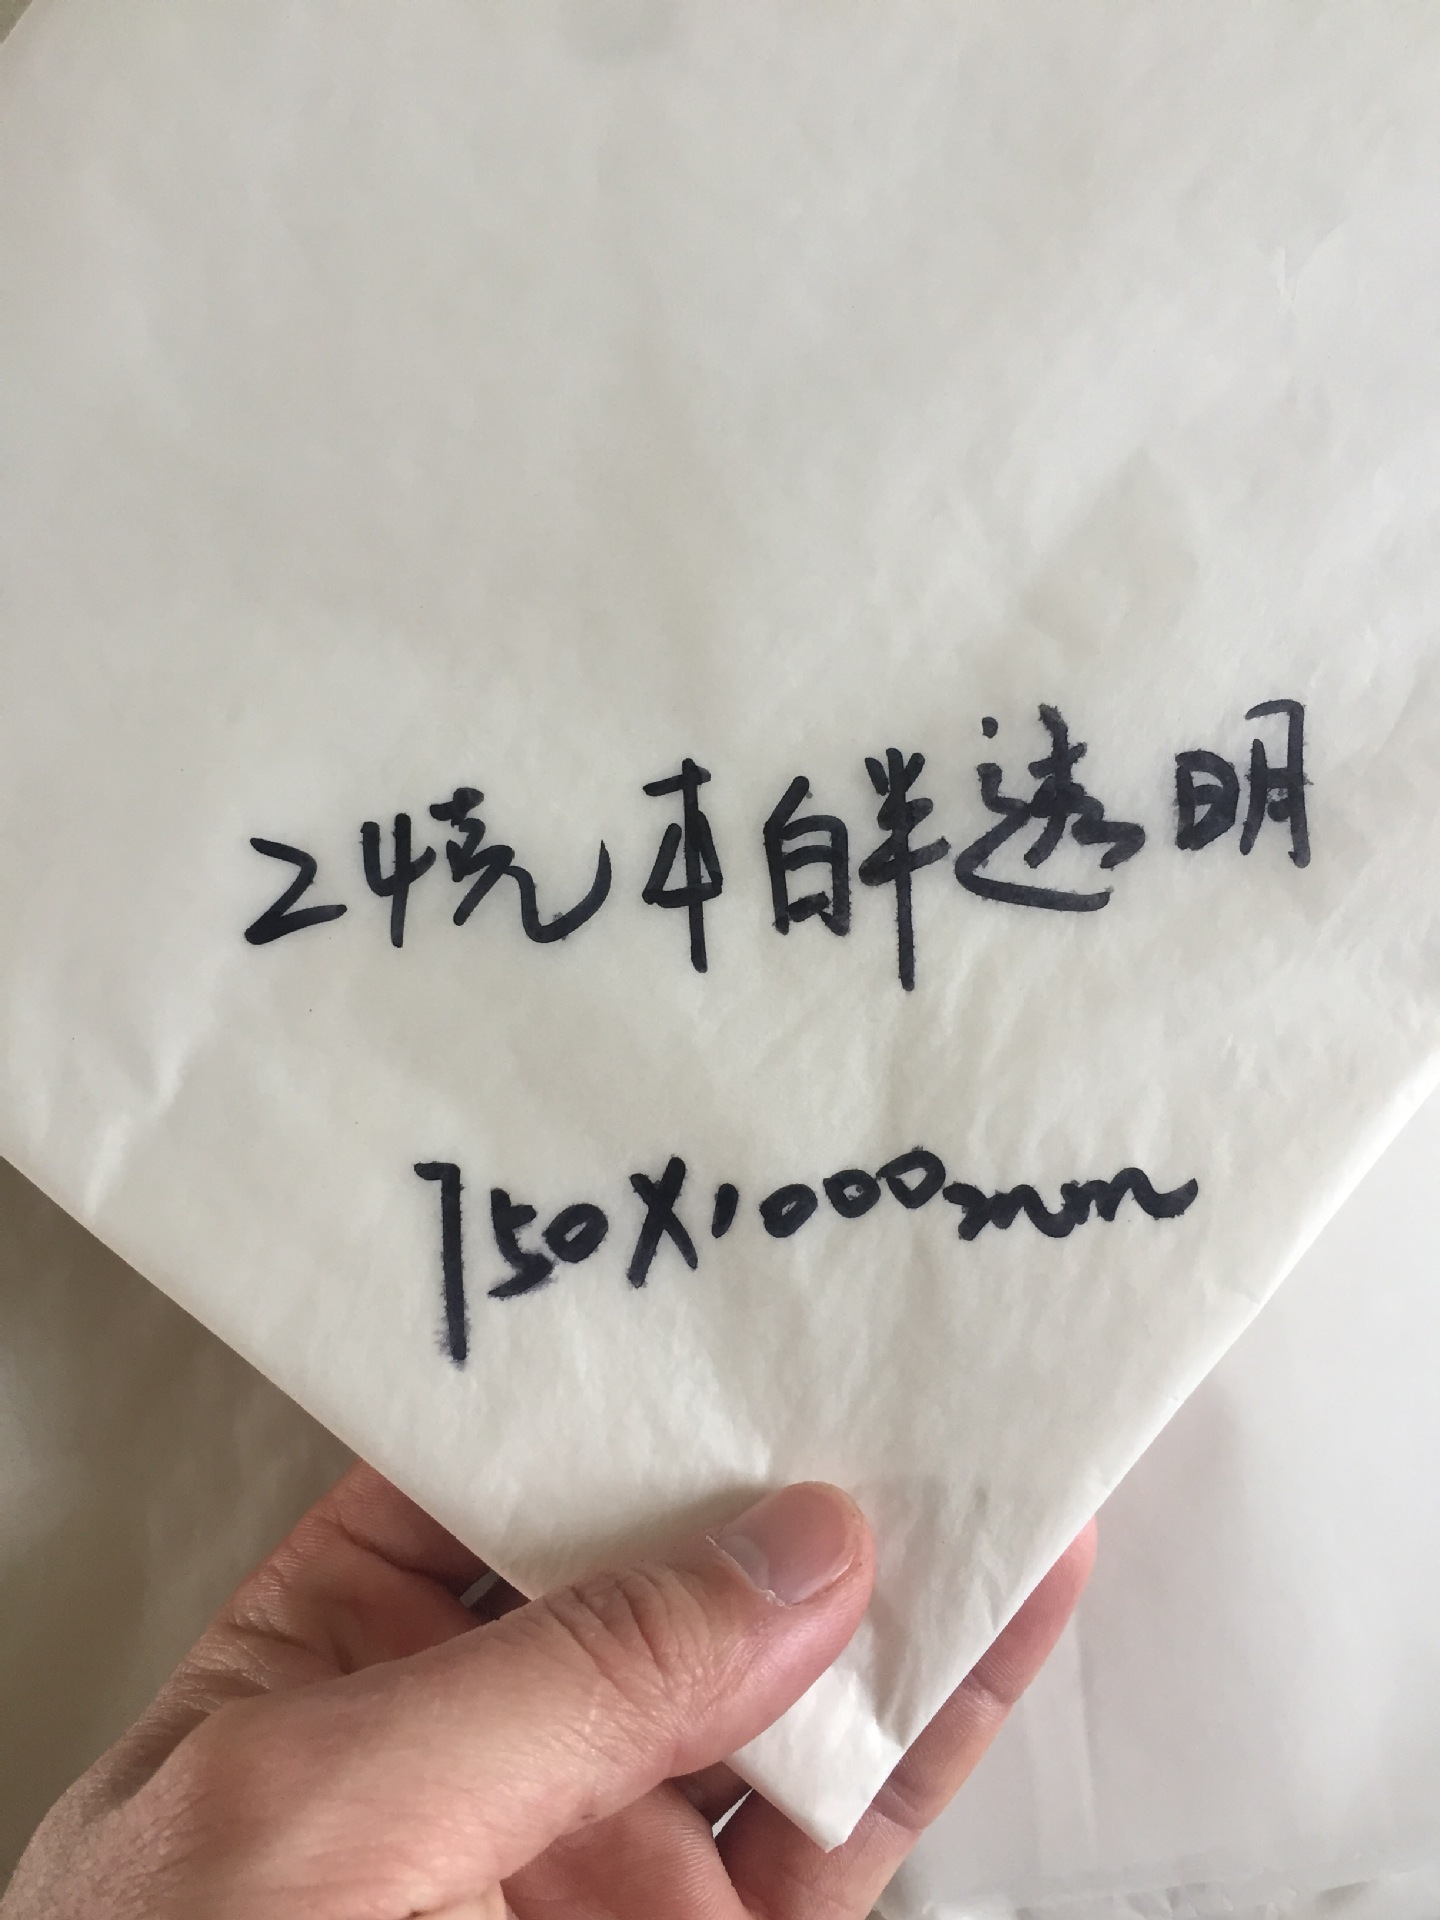 24克本白半透明
750X1000mm